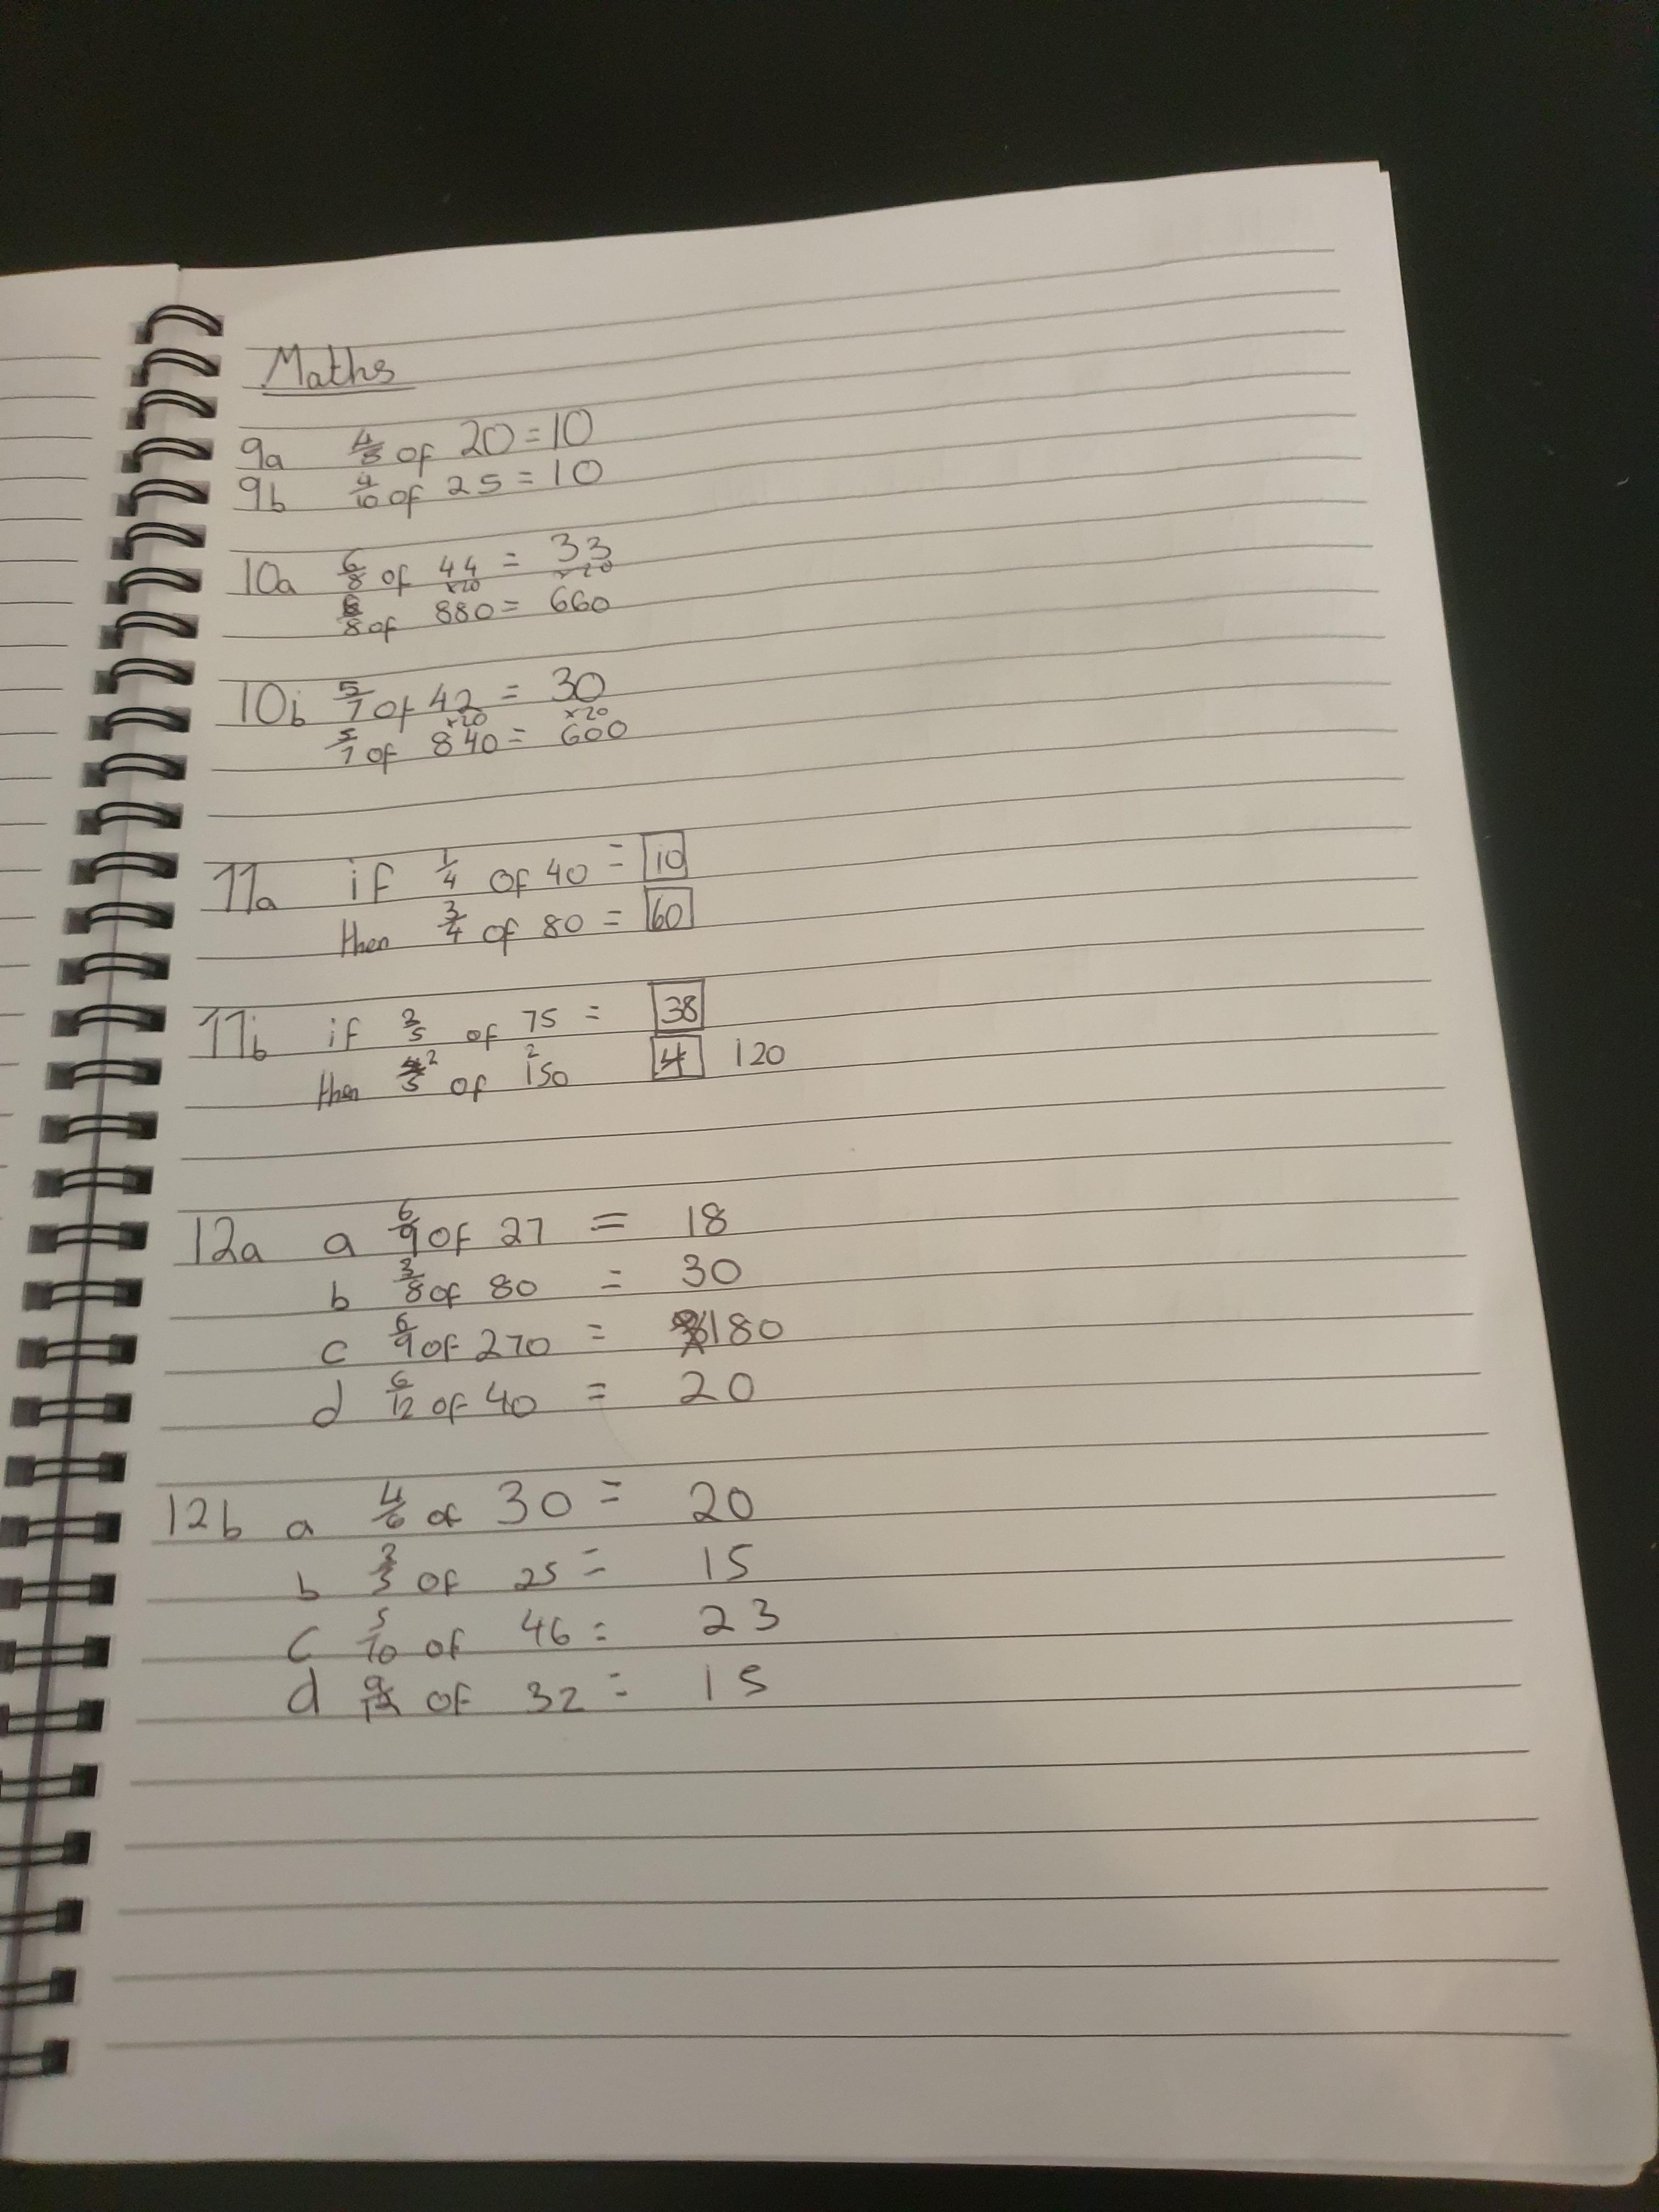 Maths
9a 4/8 of 20 = 10
9b 4/10 of 25 = 10
10a 6/8 of 44 = 33
x20 x20
6/8 of 880 = 660
10b 5/7 of 42 = 30
x20 x20
5/7 of 840 = 600
11a if 1/4 of 40 = 10
then 3/4 of 80 = 60
11b if 2/5 of 75 = 38
then 4/5 2 of 150 2 4 120
12a a 6/9 of 27 = 18
b 3/8 of 80 = 30
c 6/9 of 270 = 180
d 6/12 of 40 = 20
12b a 4/6 of 30 = 20
b 3/5 of 25 = 15
c 5/10 of 46 = 23
d of 32 = 15